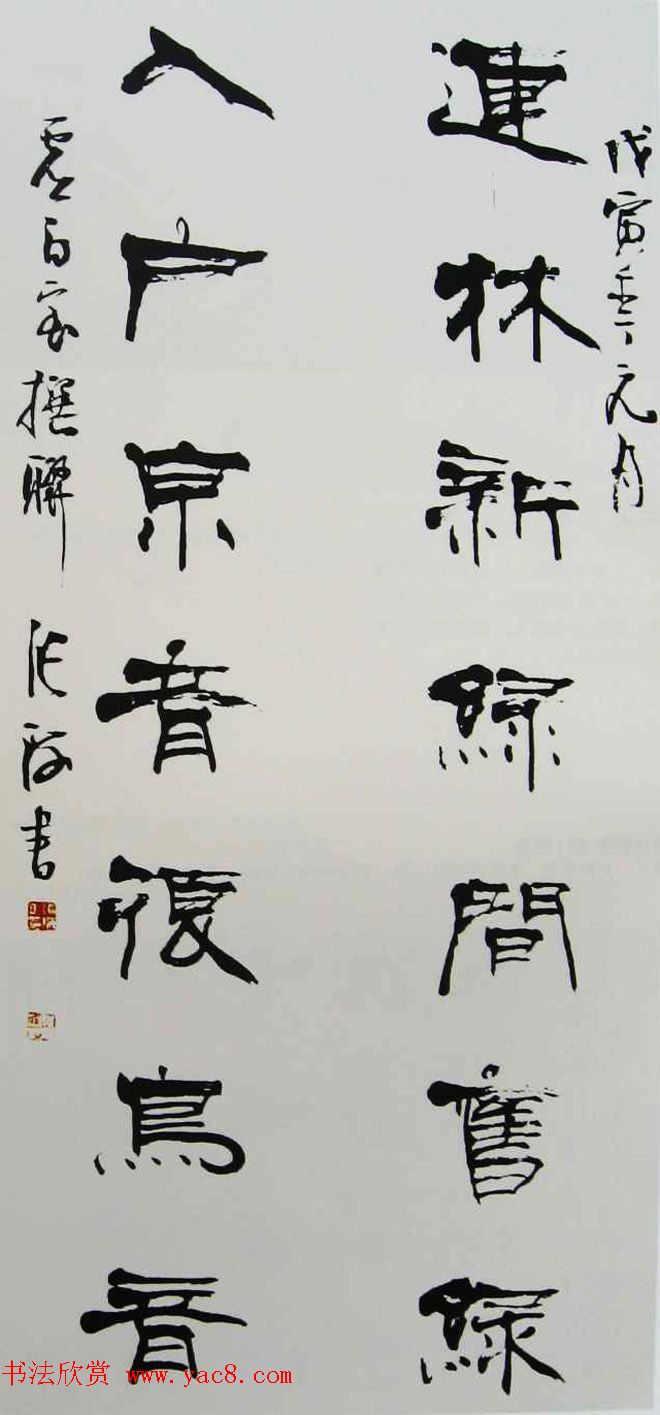 戊寅年元月
連林新綠間舊綠
入户京音復鳥音
虛白室撰聯 張海書
书法欣赏 www.yac8.com